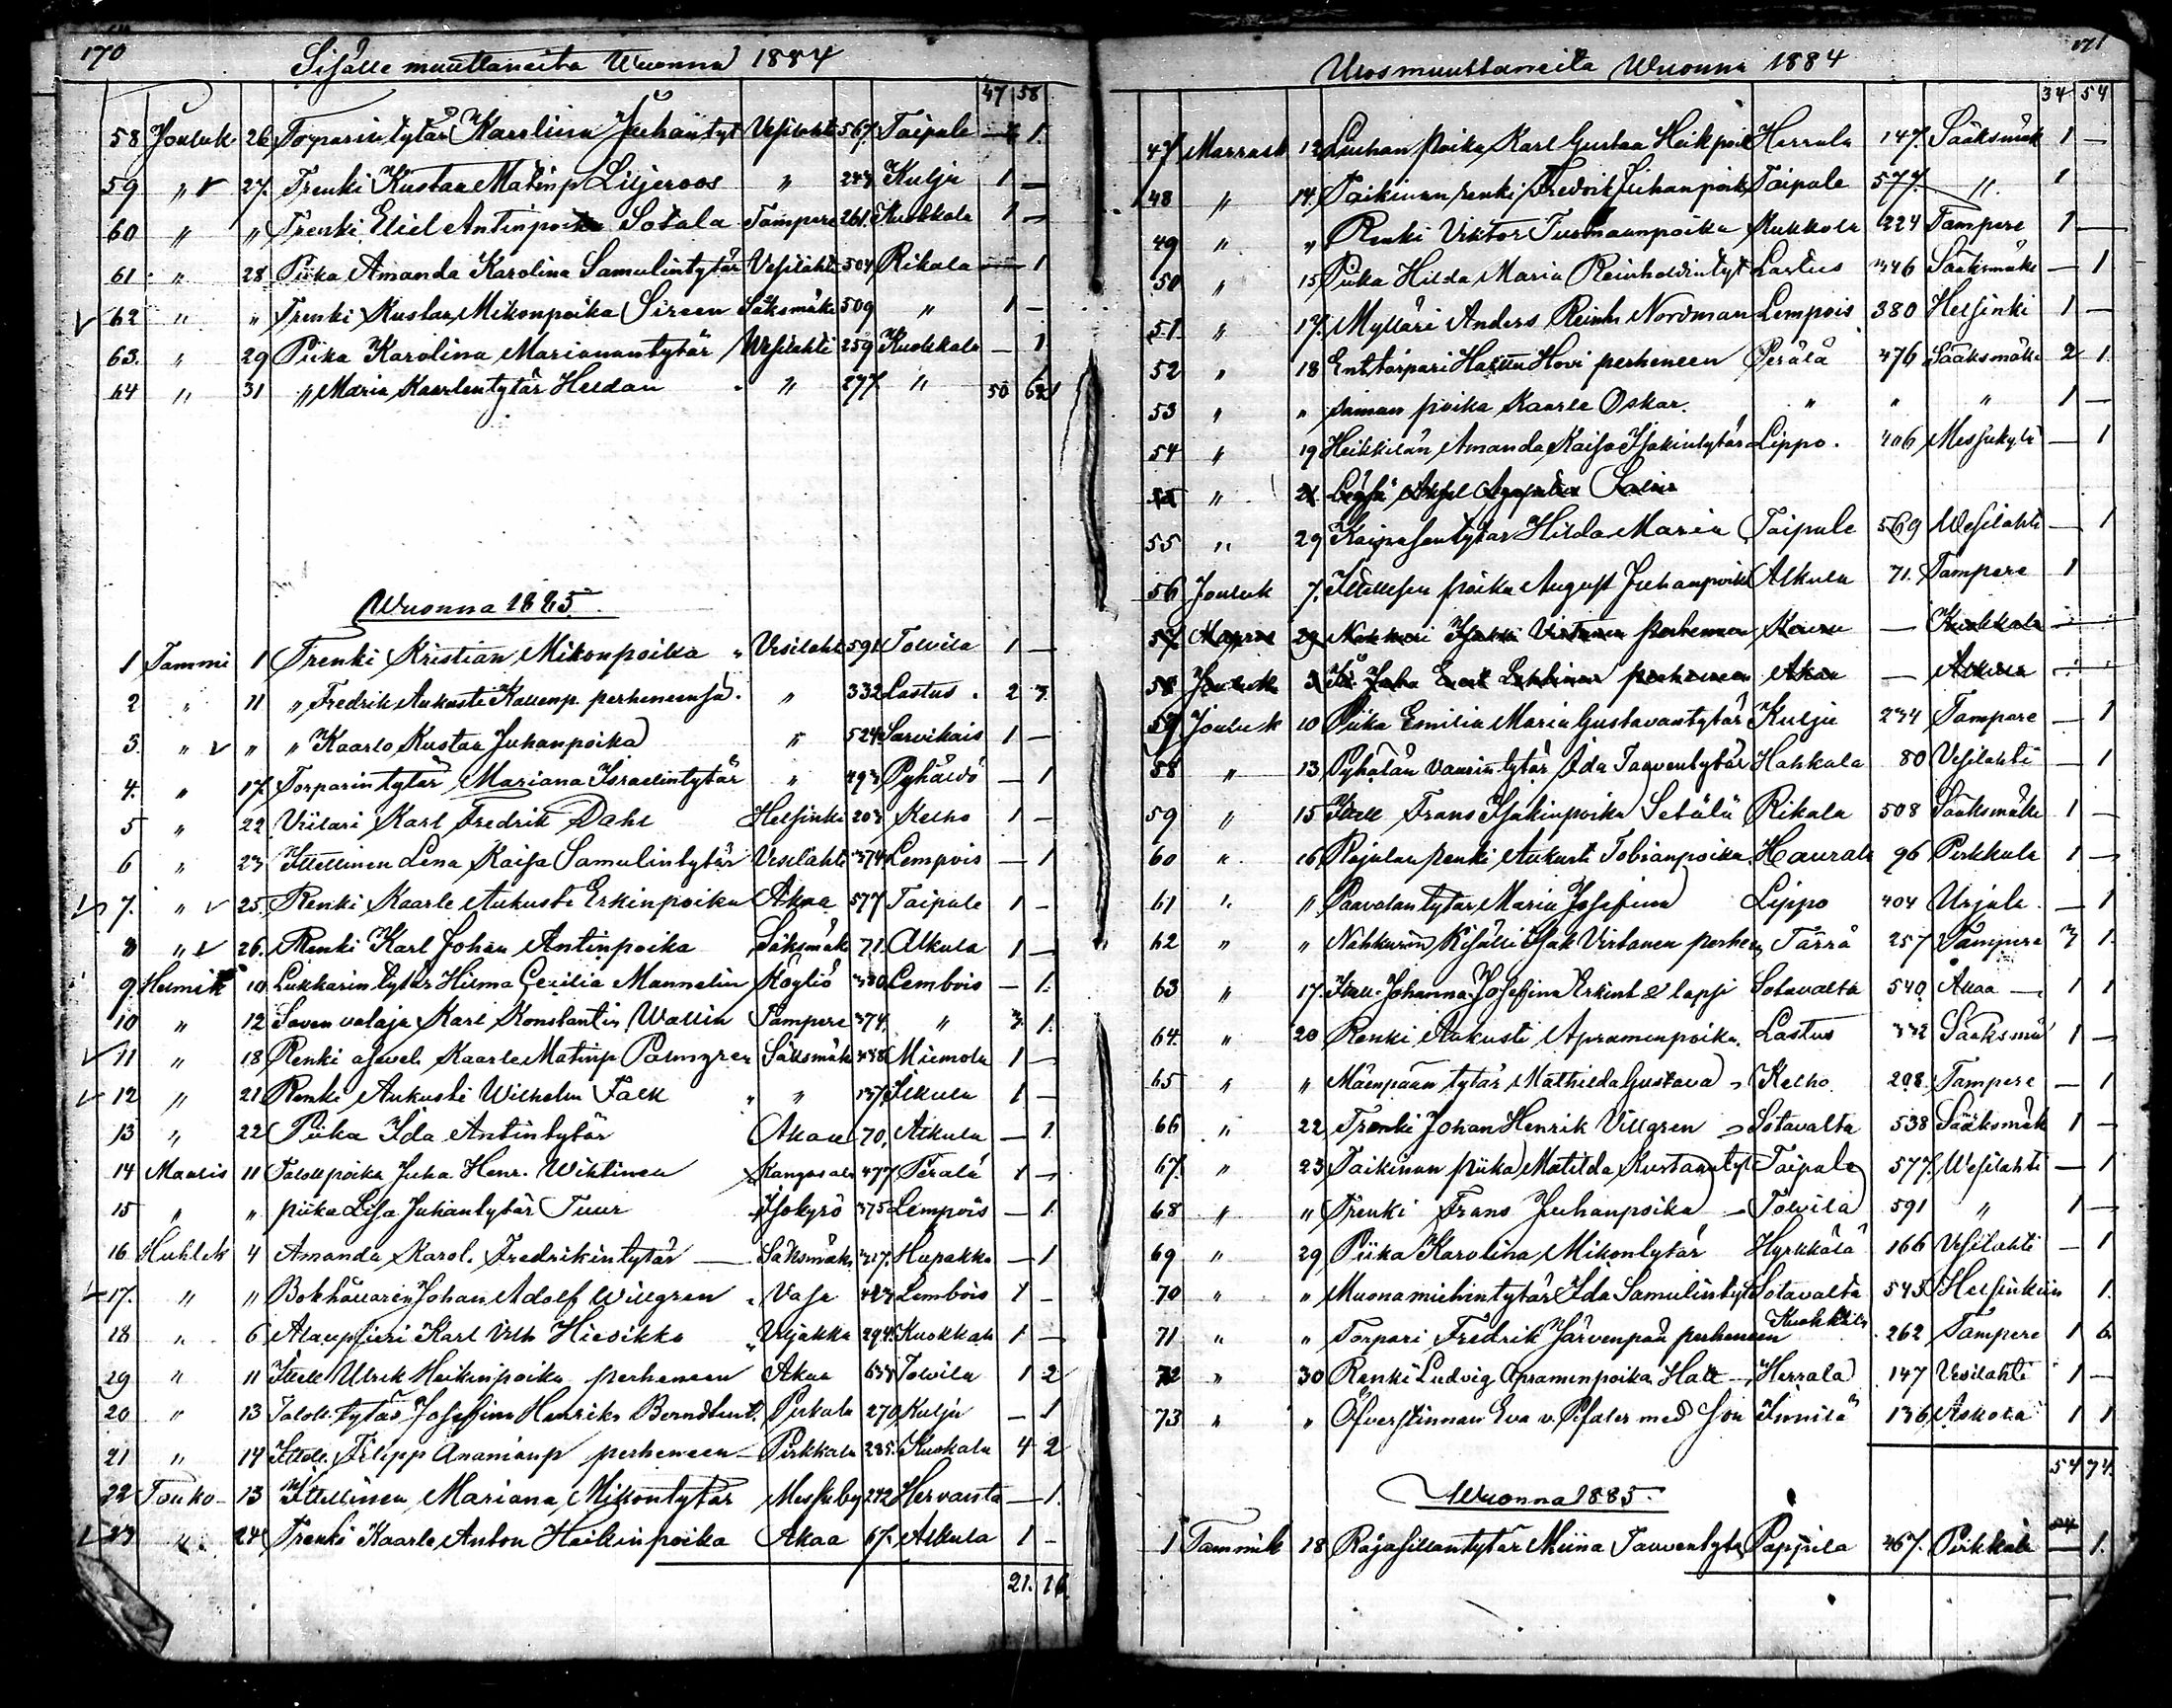 170
Sisälle muuttaneita Wuonna 1884
47 58
58 Jouluk 26 Torparin tytär Karolina Juhantyt Vesilahti 567. Taipale — 1.
59 " 27. Trenki Kustaa Matinp Liljeroos " 243 Kulju 1 —
60 " " Trenki Eliel Antinpoika Sotala Tampere 261. Kuokkala 1 —
61 " 28 Piika Amanda Karolina Samulintytär Vesilahti 504 Rikala — 1
62 " " Trenki Kustaa Mikonpoika Sireen Säksmäki 509 " 1 —
63. " 29 Piika Karolina Marianantytär Vesilahti 259 Kuokkala — 1
64 " 31 " Maria Kaarlentytär Heldan " 277. " 50 62
Wuonna 1885
1 Tammi 1 Trenki Kristian Mikonpoika Vesilaht 591 Tolvila 1 —
2 " 11 " Fredrik Aukusti Kallenp. perheneensä " 332 Lastus 2 3.
3. " " " Kaarlo Kustaa Juhanpoika " 524 Sarvikais 1 —
4. " 17. Torparin tytär Mariana Israelintytär " 493 Pyhältö — 1
5 " 22 Viilari Karl Fredrik Dahl Helsinki 203 Kelho 1 —
6 " 23 Itellinen Lena Kaisa Samulintytär Vesilahti 374 Lempois — 1
7. " 25. Renki Kaarle Aukusti Erkinpoika Akaa 577 Taipale 1 —
8 " 26. Renki Karl Johan Antinpoika Säksmäk 71. Alkula 1 —
9 Helmik 10 Lukkarin tytär Hilma Cecilia Mannelin Köyliö 380 Lembois — 1.
10 " 12 Saven valaja Karl Konstantin Wallin Tampere 374. " 3. 1.
11 " 18 Renki Kaarle Matinp Palmgren Säksmäk 438 Miemola 1 —
12 " 21 Renki Aukusti Wilhelm Falk " " 137. 1 —
13 " 22 Piika Ida Antintytär Akaa 70, Alkula — 1
14 Maalis 11 Taloll poika Juha Henr. Wiktinen Kangasala 477 Perälä 1 —
15 " " piika Lisa Juhantytär Tuur Isokyrö 375 Lempois — 1.
16 Huhtik 4 Amanda Karol. Fredrikintytär — Säksmäk 317. Hapakka — 1
17. " " Bokhållaren Johan Adolf Willgren Vasa 423 Lembois 1 —
18 " 6 Karl Vilh Hiesikko Urjakka 294. Kuokkala 1 —
29 " 11 Itell Ulrik Heikinpoika perheneen Akaa 638 Tolvila 1 2
20 " 13 Taloll. tytär Josefina Henriks Berndtunt. Pirkala 270 Kulju — 1
21 " 14 Itell. Filipp Ananianp perheneen — Pirkkala 285. Kuokala 4 2
22 Touko 13 Itellinen Mariana Mikontytär Messuby 242 Hervanta — 1.
23 " 24 Trenki Kaarle Anton Heikinpoika Akaa 67. Alkula 1 —
21. 16
171
Ulosmuuttaneita Wuonna 1884
34 54
47 Marrask 12 Luuhan poika Karl Gustaa Heikpoik Herrala 147. Sääksmäk 1 —
48 " 14. Taikinan renki Fredrik Juhanpoik Taipale 577. " 1
49 " " Renki Viktor Tuomaanpoika Kukkola 224 Tampere 1 —
50 " 15 Piika Hilda Maria Reinholdintyt Lastus 346 Sääksmäki — 1
51. " 17. Mylläri Anders Reinh Nordman Lempois 380 Helsinki 1 —
52 " 18 Ent. torpari Hovi perheneen Perälä 476 Sääksmäki 2 1.
53 " " saman poika Kaarle Oskar. " " " 1 —
54 " 19 Heikkilän Amanda Kaisa Isakintytär Lippo. 406 Messukylä — 1
" 21
55 " 29 Kaipasentytär Hilda Maria Taipale 569 Wesilahti — 1
56 Jouluk 7. Itellisen poika August Juhanpoika Alkula 71. Tampere 1
57. 29 Nahkuri Isakki Virtanen perheneen — Kuokkala
58 Jouluk 3 Juha perheneen Akaa — Alkula
57 Jouluk 10 Piika Emilia Maria Gustavantytär Kulju 234 Tampere — 1
58 " 13 Pyhälän vaarin tytär Ida Taaventytär Hahkala 80 Vesilahti — 1
59 " 15 Itell Frans Isakinpoika Setälä Rikala 508 Sääksmäki 1 —
60 " 16 Rajalan renki Aukusti Tobianpoika Haurala 96 Pirkkala 1 —
61 " " Paavolan tytär Maria Josefina Lippo 404 Urjala — 1
62 " " Nahkurin Kisälli Isak Virtanen perheen Tärrä 257 Tampere 3 1.
63 " 17. Itell. Johanna Josefina Erkint & lapsi Sotavalta 540 Akaa — 1 1
64. " 20 Renki Aukusti Apramenpoika. Lastus 332 Sääksmä 1 —
65 " " Mäenpään tytär Mathilda Gustava Kelho. 208. Tampere — 1
66 " 22 Trenki Johan Henrik Villgren Sotavalta 538 Sääksmäk 1 —
67. " 23 Taikinan piika Matilda Kustaantyt Taipale 577. Wesilahti — 1
68 " " Trenki Frans Juhanpoika — Tolvila 591 " 1 —
69 " 29 Piika Karolina Mikontytär Hyrkkälä 166 Vesilahti — 1
70 " " Muonamiehin tytär Ida Samulintyt Sotavalta 545 Helsinkiin 1.
71 " " Torpari Fredrik Järvenpää perheneen Kuokkala 262 Tampere 1 6
72 " 30 Renki Ludvig Apramenpoika Hall — Herrala 147 Vesilahti 1 —
73 " " Öfverstinnan Eva v. Pfaler med son Innilä 136 Askola 1 1
54 74.
Wuonna 1885.
1 Tammik 18 Rajasillan tytär Miina Taaventyt Pappila 467. Pirkkala — 1.